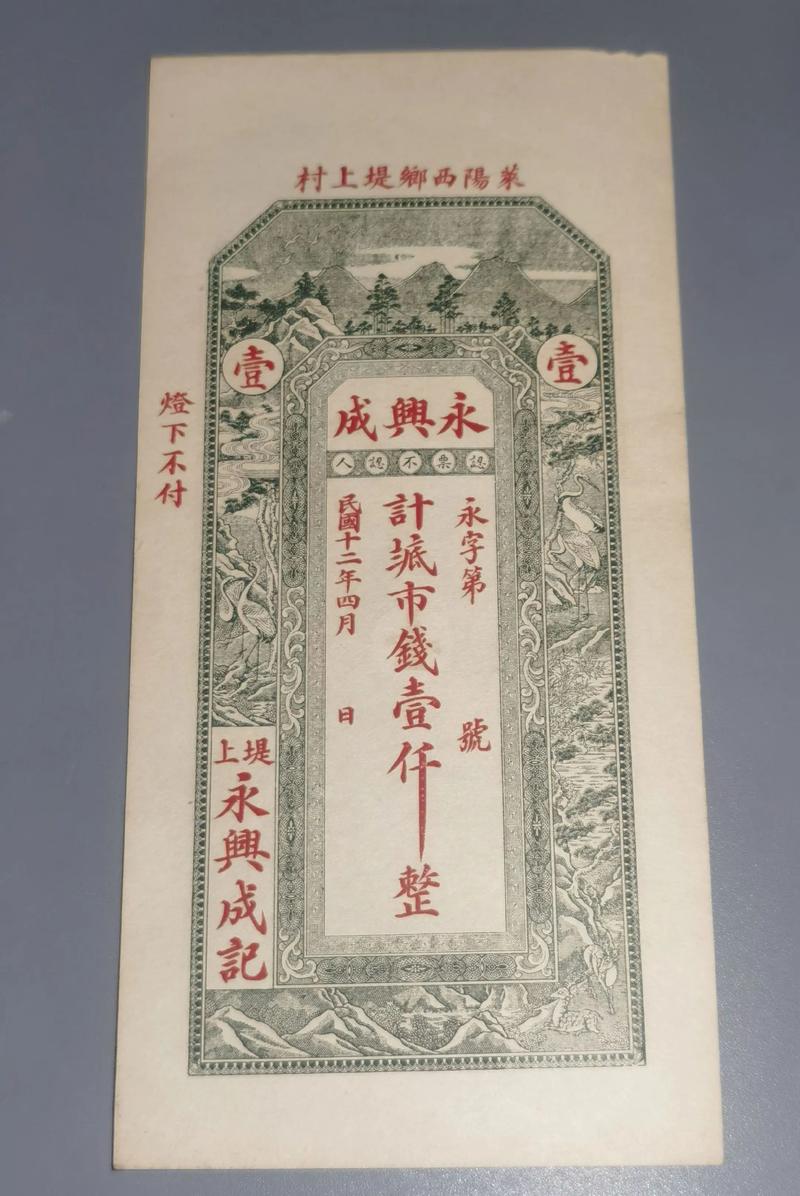 萊陽西鄉堤上村
壹
壹
永興成
認票不認人
永字第 號
計㡳市錢壹仟整
民國十二年四月 日
燈下不付
堤上
永興成記